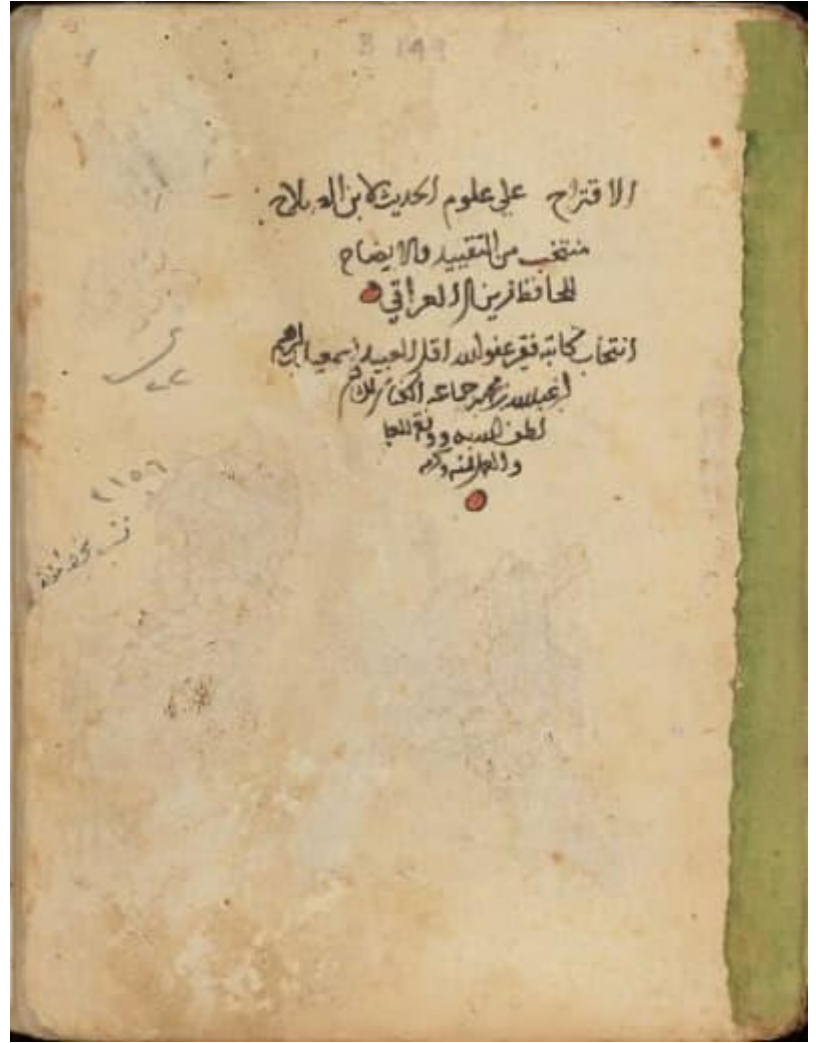 B 149
الاقتراح على علوم الحديث لابن الصلاح
منتخب من التقييد والايضاح
للحافظ زين الدين العراقي
انتخاب كاتبه فقير عفو الله اقل العبيد اسمعيل بن ابرهيم
ابن عبدالله بن محمد بن جماعه الكناني
لطف الله به ووفق للعلم
والعمل بمنه وكرمه
٢١٥٦